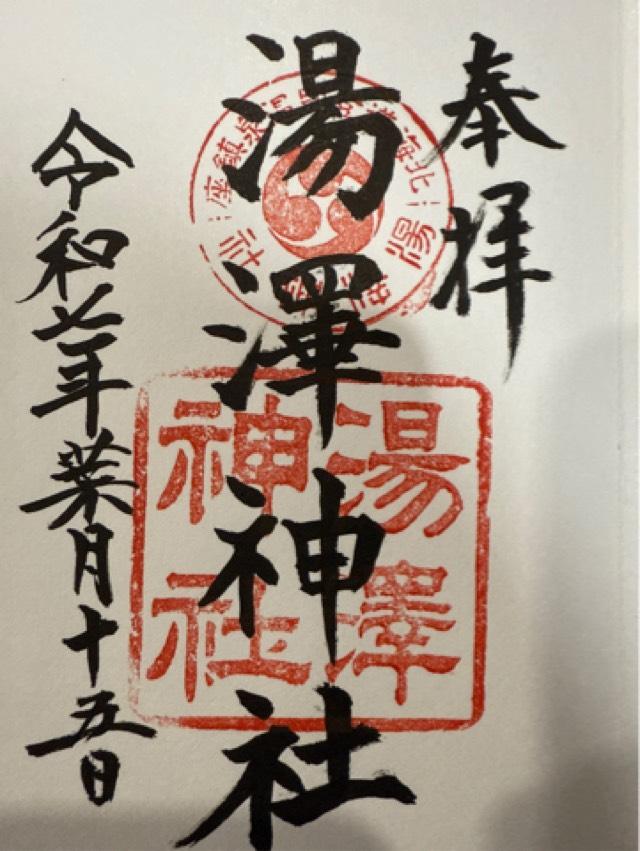 奉拝
湯澤神社
令和七年葉月十五日
湯澤
神社